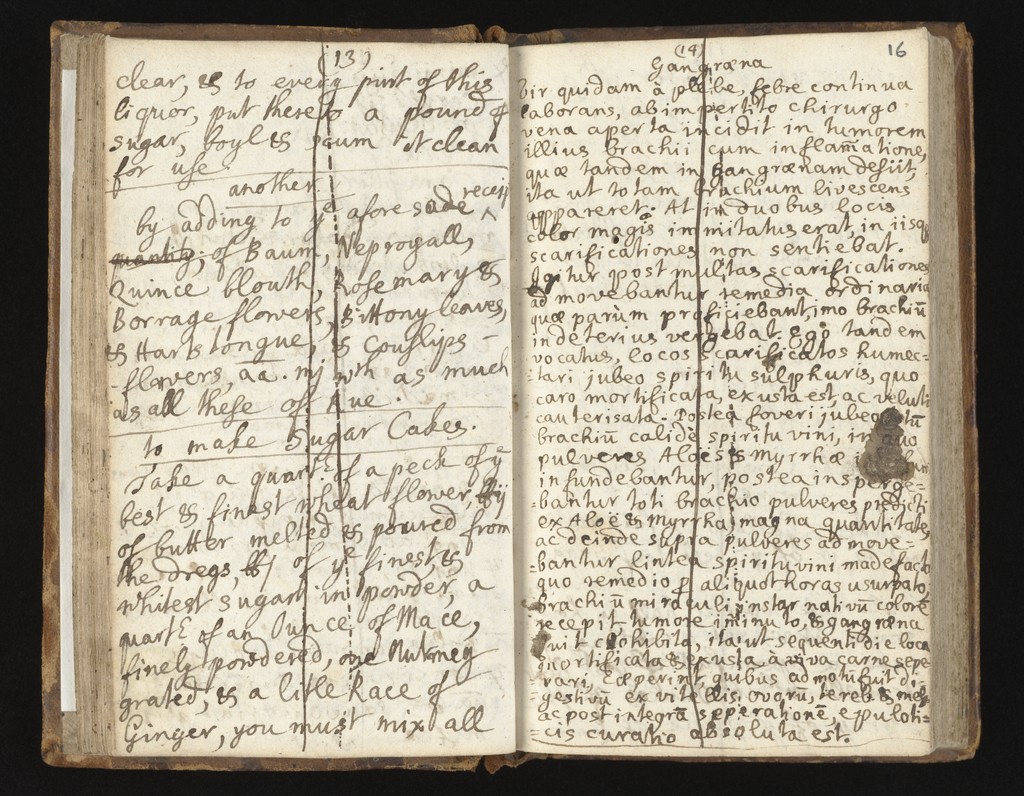 (13)
clear, & to every pint of this
liquor, put thereto a pound of
sugar, boyl & scum it clean
for use.
another.
by adding to ye aforesade receip
quantity, of Baum, Neproyall,
Quince blouth, Rosemary &
Borrage flowers, Bittony leaves,
& Harts tongue, & Couslips -
-flowers, aa. mj wth as much
as all these of Rue.
to make Sugar Cakes.
Take a quartr of a peck of ye
best & finest wheat flower, ℔ij
of butter melted & poured from
the dregs, ℔j of ye finest &
whitest sugar in powder, a
quartr of an Ounce of Mace,
finely powdered, one Nutmeg
grated, & a litle Race of
Ginger, you must mix all
(14)
16
Gangræna
Vir quidam à plebe, febre continua
laborans, ab impertito chirurgo
vena aperta incidit in tumorem
illius brachii cum inflam̄atione,
quæ tandem in gangrænam desiit
ita ut totam brachium livescens
appareret. At in duobus locis
color magis immitatus erat, in iisq
scarificationes non sentiebat.
Igitur post multas scarificationes
admovebantur remedia ordinaria
quæ parum proficiebant, imo brachiū
in deterius vergebat. Ego tandem
vocatus, locos scarificatos humec=
tari jubeo spiritu sulphuris, quo
caro mortificata, exusta est, ac veluti
cauterisata. Postea foveri jubeo totū
brachiū calidè spiritu vini, in quo
pulveres Aloës & myrrhæ
infundebantur, postea insperge=
=bantur toti brachio pulveres predicti
ex Aloë & myrrha magna quantitate,
ac deinde supra pulveres admove=
=bantur lintea spiritu vini madefacta
quo remedio p aliquot horas usurpato,
Brachiū miraculi instar nativū colorē
recepit tumore iminuto, & gangræna
fuit cohibita, ita ut sequenti die loca
mortificata & exusta, à viva carne sepe
=rari, cœperint, quibus admotū fuit di=
=gestivū ex vitellis, ovorū, tereb. & mel
ac post integrā seperationē, eppuloti=
=cis curatio absoluta est.